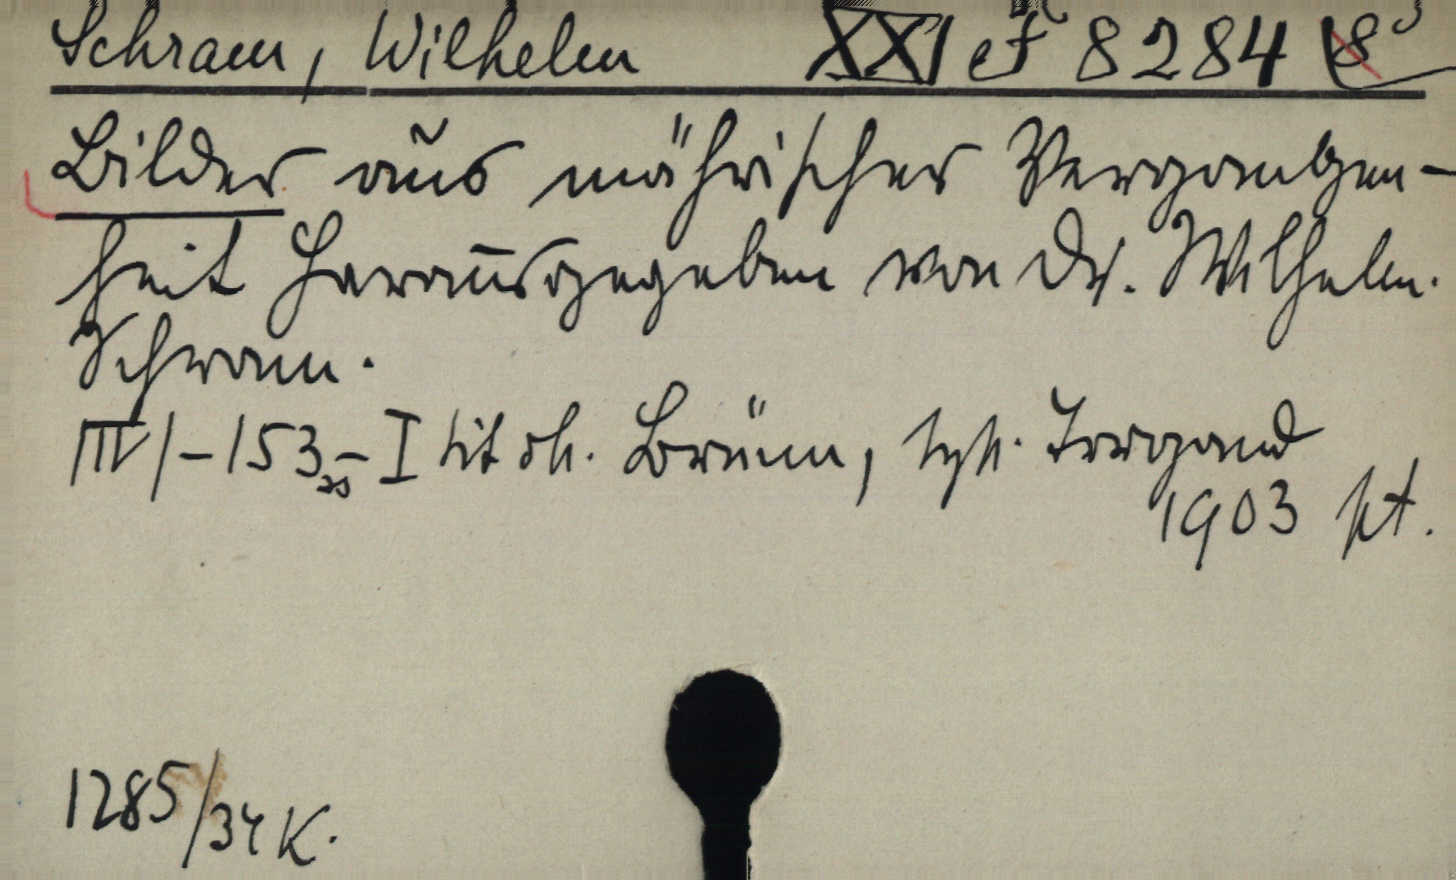 Schram, Wilhelm XXI eF 8284 8°
Bilder aus mährischer Vergangen-
heit Herausgegeben von Dr. Wilhelm
Schram.
IV 1-153 - I tit ch. Brünn, typ. Irrgang
1903 pt.
1285/34 K.